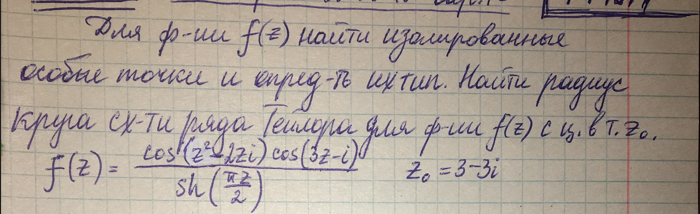 Для ф-ии f(z) найти изолированные
особые точки и опред-ть их тип. Найти радиус
круга сх-ти ряда Тейлора для ф-ии f(z) с ц. в т. z₀.
f(z) = cos(z²-2zi) cos(3z-i) / sh(πz/2) z₀ = 3-3i